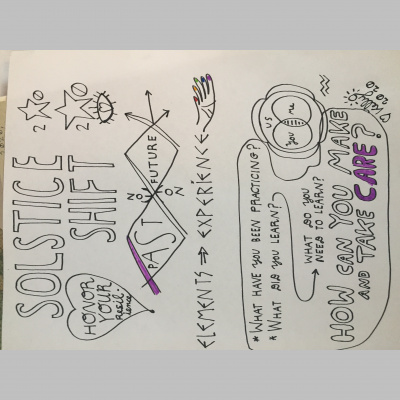 SOLSTICE 20
SHIFT 20
HONOR
YOUR
Resil-
ience
PAST
NOON
FUTURE
ELEMENTS → EXPERIENCE
us
me
you
* WHAT HAVE YOU BEEN PRACTICING?
* WHAT DID YOU LEARN?
WHAT DO YOU
NEED TO LEARN?
HOW CAN YOU MAKE
AND TAKE CARE?